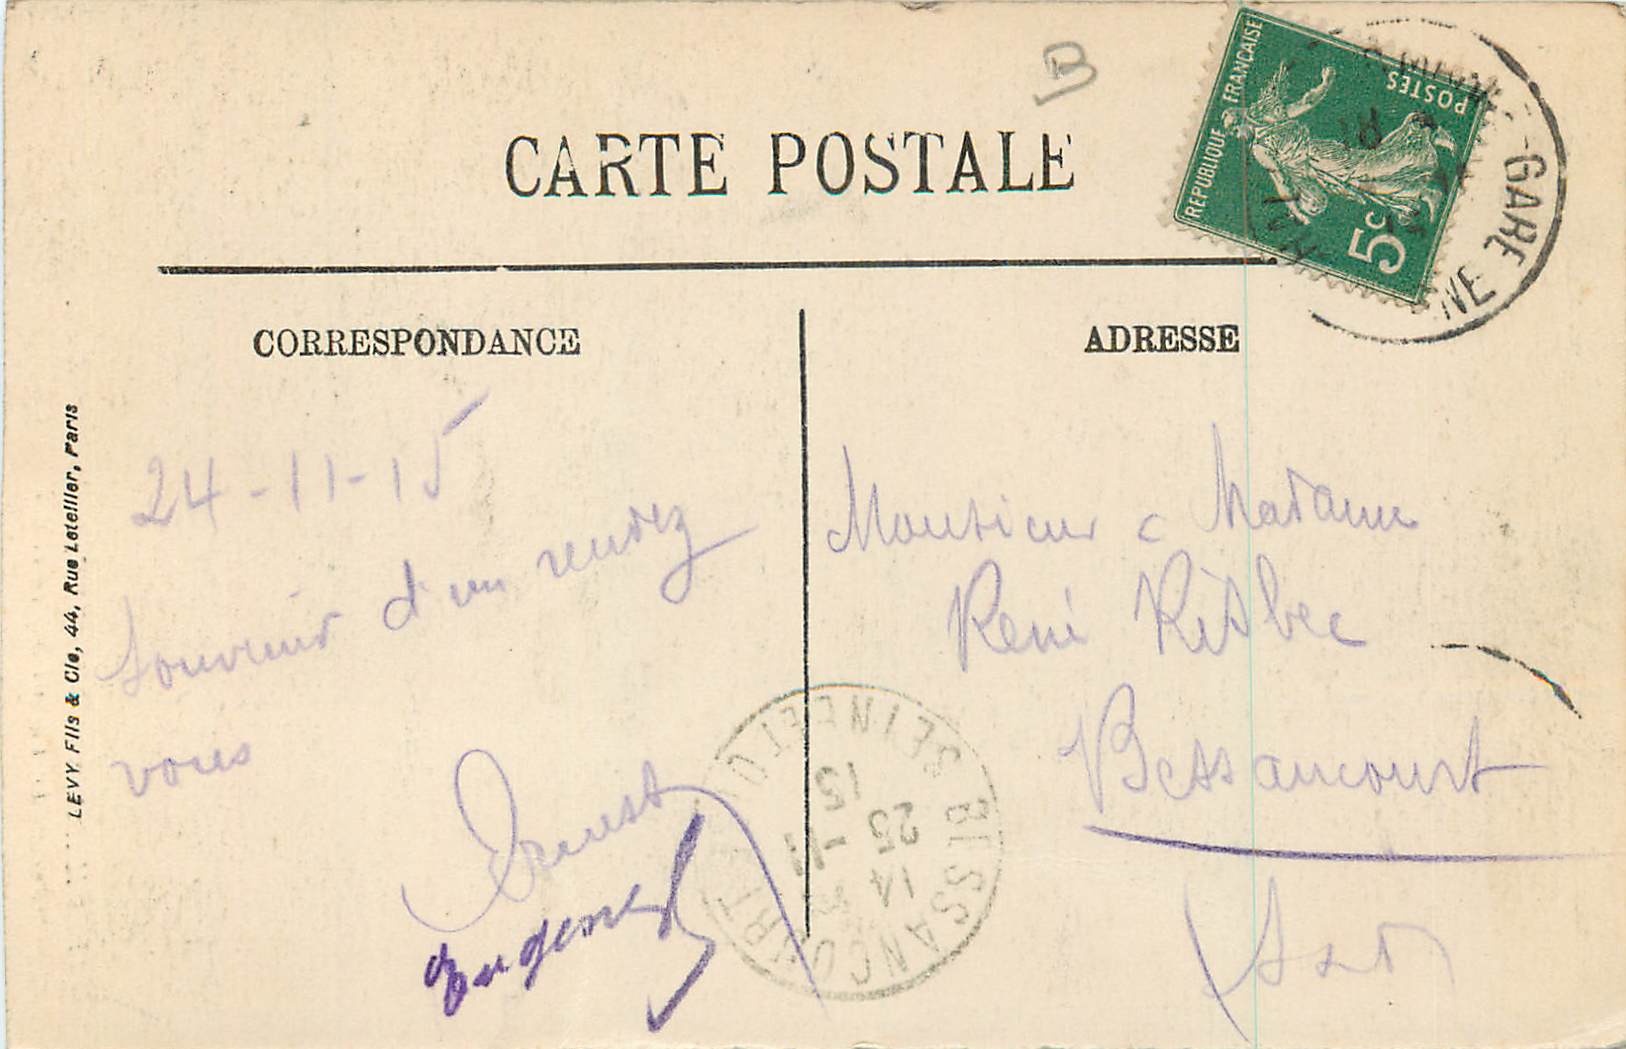 B
CARTE POSTALE
REPUBLIQUE FRANCAISE
POSTES
5c
GARE
CORRESPONDANCE
ADRESSE
LEVY Fils & Cie, 44, Rue Letellier, Paris
24-11-15
Souvenir d'un rendez
vous
Ernest
Eugene
Monsieur & Madame
René
Bessancourt
(S&O)
BESSANCOURT
SEINE ET O
14
25 -11
15